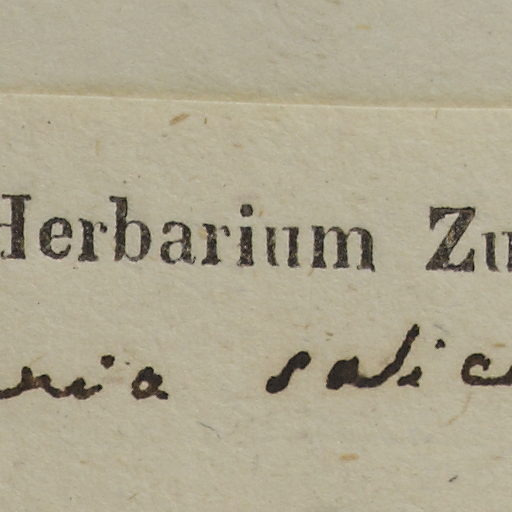 Herbarium Zu
ria salic